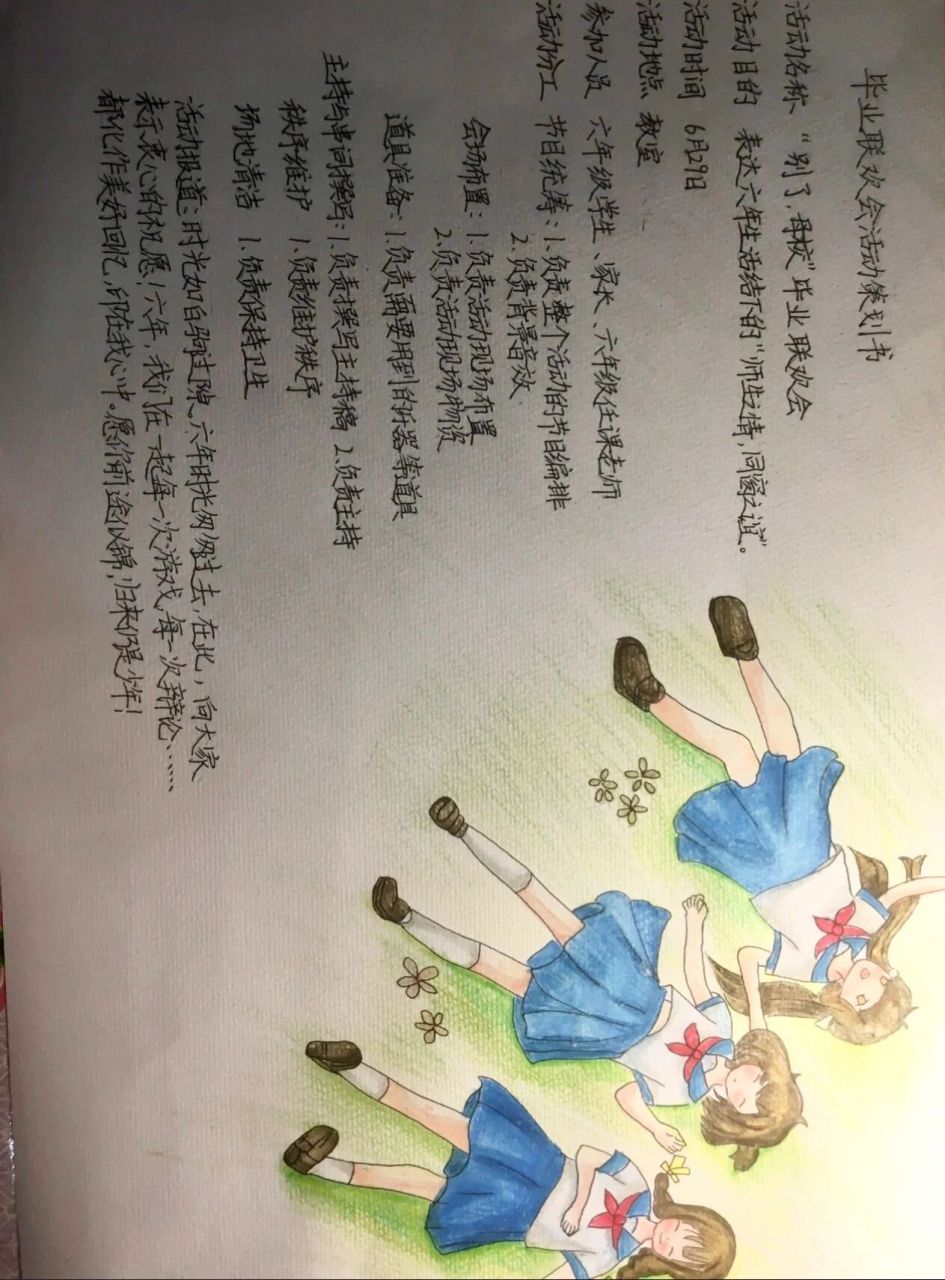 毕业联欢会活动策划书
活动名称 “别了，母校”毕业联欢会
活动目的 表达六年生活结下的“师生之情，同窗之谊”。
活动时间 6月29日
活动地点 教室
参加人员 六年级学生、家长、六年级任课老师
活动分工 节目统筹：1.负责整个活动的节目编排
2.负责背景音效
会场布置：1.负责活动现场布置
2.负责活动现场物资
道具准备：1.负责需要用到的乐器等道具
主持与串词撰写：1.负责撰写主持稿 2.负责主持
秩序维护 1.负责维护秩序
场地清洁 1.负责保持卫生
活动报道：时光如白驹过隙、六年时光匆匆过去，在此，向大家
表示衷心的祝愿！六年，我们在一起每一次游戏，每一次辩论……
都化作美好回忆，印在我心中。愿你前途似锦，归来仍是少年！